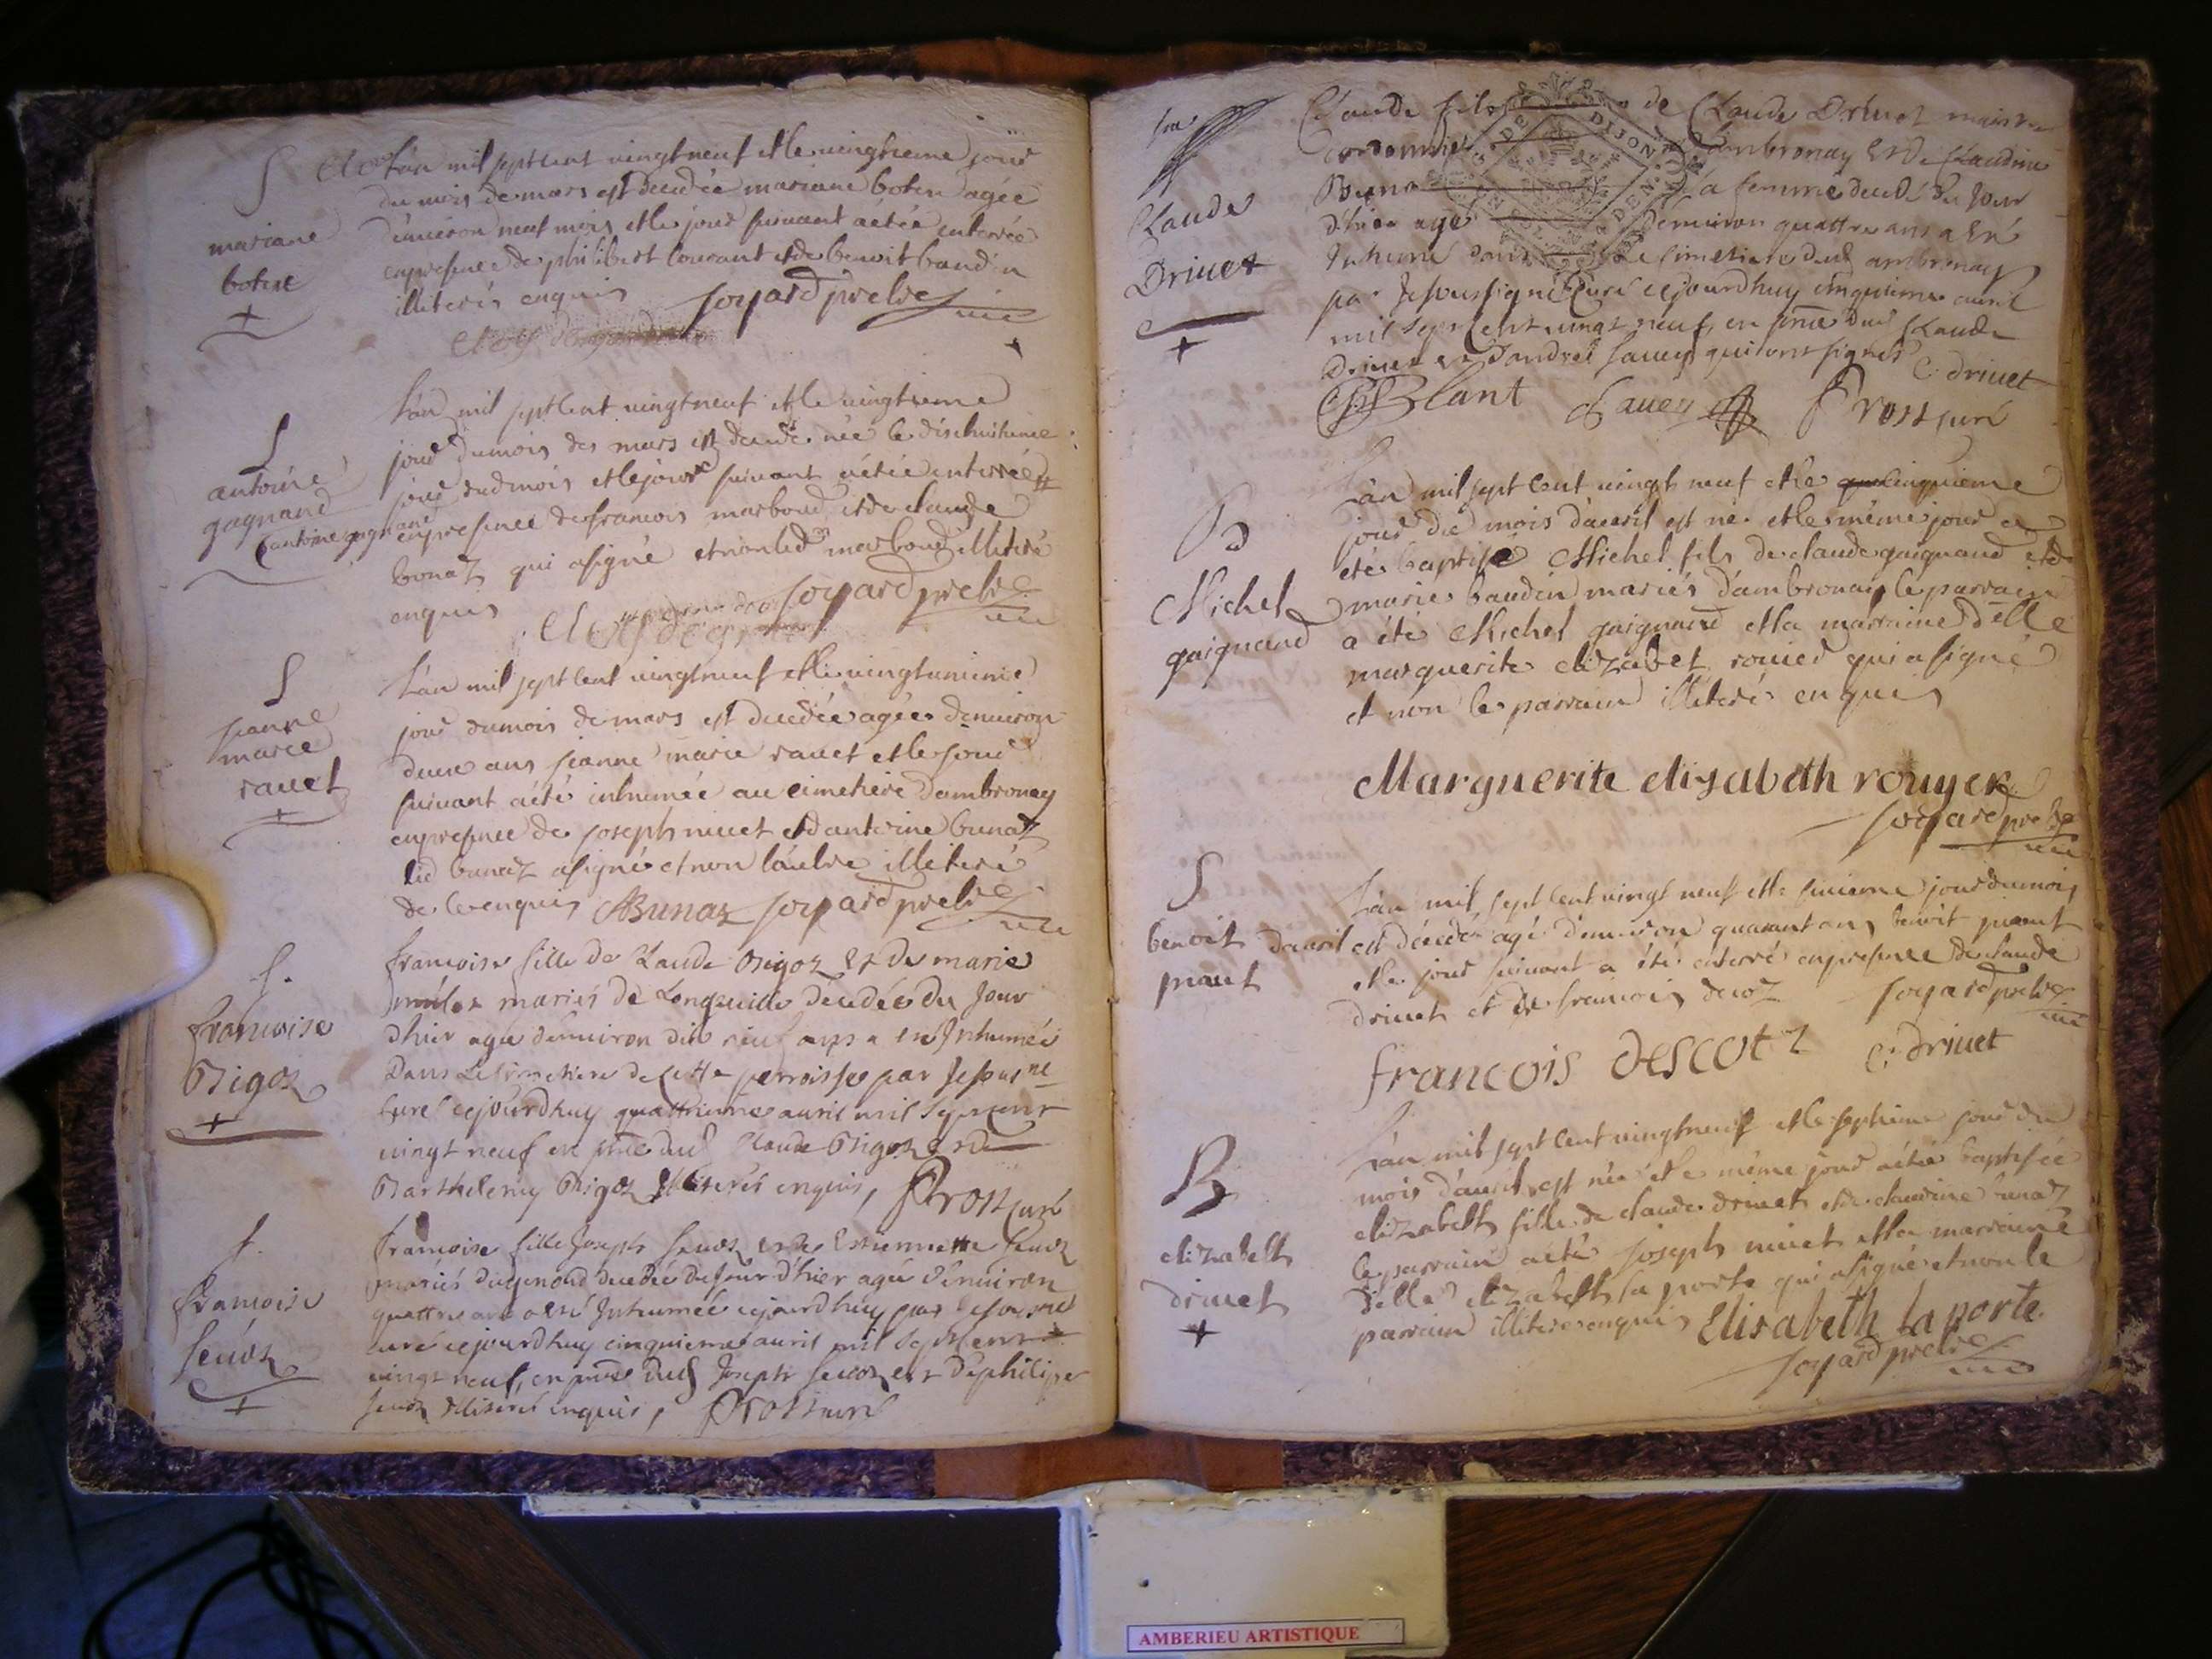 S
mariane
boten
L'an mil sept cent vingt neuf et le vingtieme jour
du mois de mars est decedée mariane boten agée
d'environ neuf mois et le jour suivant a étée enterrée
en presence de philibert Courant et de benoit baudin
illiterés enquis Joyard prebre
S
antoine
gagnand
antoine gagnand
L'an mil sept cent vingt neuf et le vingtieme
jour du mois des mars est decedé née le dischuitieme
jour dud mois et le jour suivant a étée enterrée
en presence de francois marboud et de claude
bonaz qui a signé et non led marboud illiteré
enquis Joyard prebre
S
jeanne
marie
ravet
L'an mil sept cent vingt neuf et le vingtunieme
jour du mois de mars est decedée agée denviron
deux ans jeanne marie ravet et le jour
suivant a été inhumée au cimetiere dambronay
en presence de joseph nivet et d'antoine bunaz
led bunaz a signé et non l'autre illiteré
de ce enquis ABunaz Joyard prebre
S.
francoise
Bigoz
francoise fille de Claude Bigoz Et de marie
mariés de Longeville décedée du Jour
d'hier agée denviron dix neuf ans a eté Inhumée
Dans Le simetiere de cette perroisse par Je soussne
Curé cejourdhuy quattrieme avril mil Sept cent
vingt neuf en pnce dud Claude Bigoz et de
Barthelemy Bigoz Illiterés enquis, Prost curé
S.
francoise
Sevoz
francoise fille Joseph Sevoz et de Estiennette Sevoz
mariés dugenoud decedée du Jour d'hier agée d'environ
quattre ans a eté Inhumée cejourdhuy par Je soussné
curé cejourdhuy cinquieme avril mil Sept Cent
vingt neuf, en pnce dud Joseph Sevoz et d'philipe
Sevoz Illiterés enquis, Prost curé
Claude
Drivet
Claude fils de Claude Drivet maistre
cordonnier d'ambronay Et de Claudine
Buna sa femme decedé du Jour
d'hier agé d'environ quattre ans a Eté
Inhumé dans Le simetiere dud ambronay
par Je soussigné Curé cejourdhuy cinquieme avril
mil Sept Cent vingt neuf, en pnce dud Claude
Drivet et d'andrel Savey qui ont signés C. drivet
Blant Savey Prost curé
B
Michel
gaignand
L'an mil sept cent vingt neuf et le cinquieme
jour du mois d'avril est né et le même jour a
eté baptisé Michel fils de claude gaignand et de
marie baudin mariés d'ambronay le parrain
a été Michel gaignand et la marraine delle
marguerite elizabet rouier qui a signé
et non le parrain illiteré enquis
Marguerite elizabeth rouyer
Joyard prebre
S
benoit
praut
L'an mil sept cent vingt neuf et le sixieme jour du mois
d'avril est décedé agé d'environ quarant ans benoit praut
et le jour suivant a été enterré en presence de claude
drivet et de francois decoz Joyard prebre
francois descotz C. drivet
B
elizabeth
drivet
L'an mil sept cent vingt neuf et le septieme jour du
mois d'avril est née et le même jour a étée baptisée
elizabeth fille de claude drivet et de claudine bunaz
le parrain a été joseph nivet et la marraine
delle elizabeth la porte qui a signé et non le
parrain illiteré enquis Elisabeth la porte
Joyard prebre
DIJON
AMBERIEU ARTISTIQUE